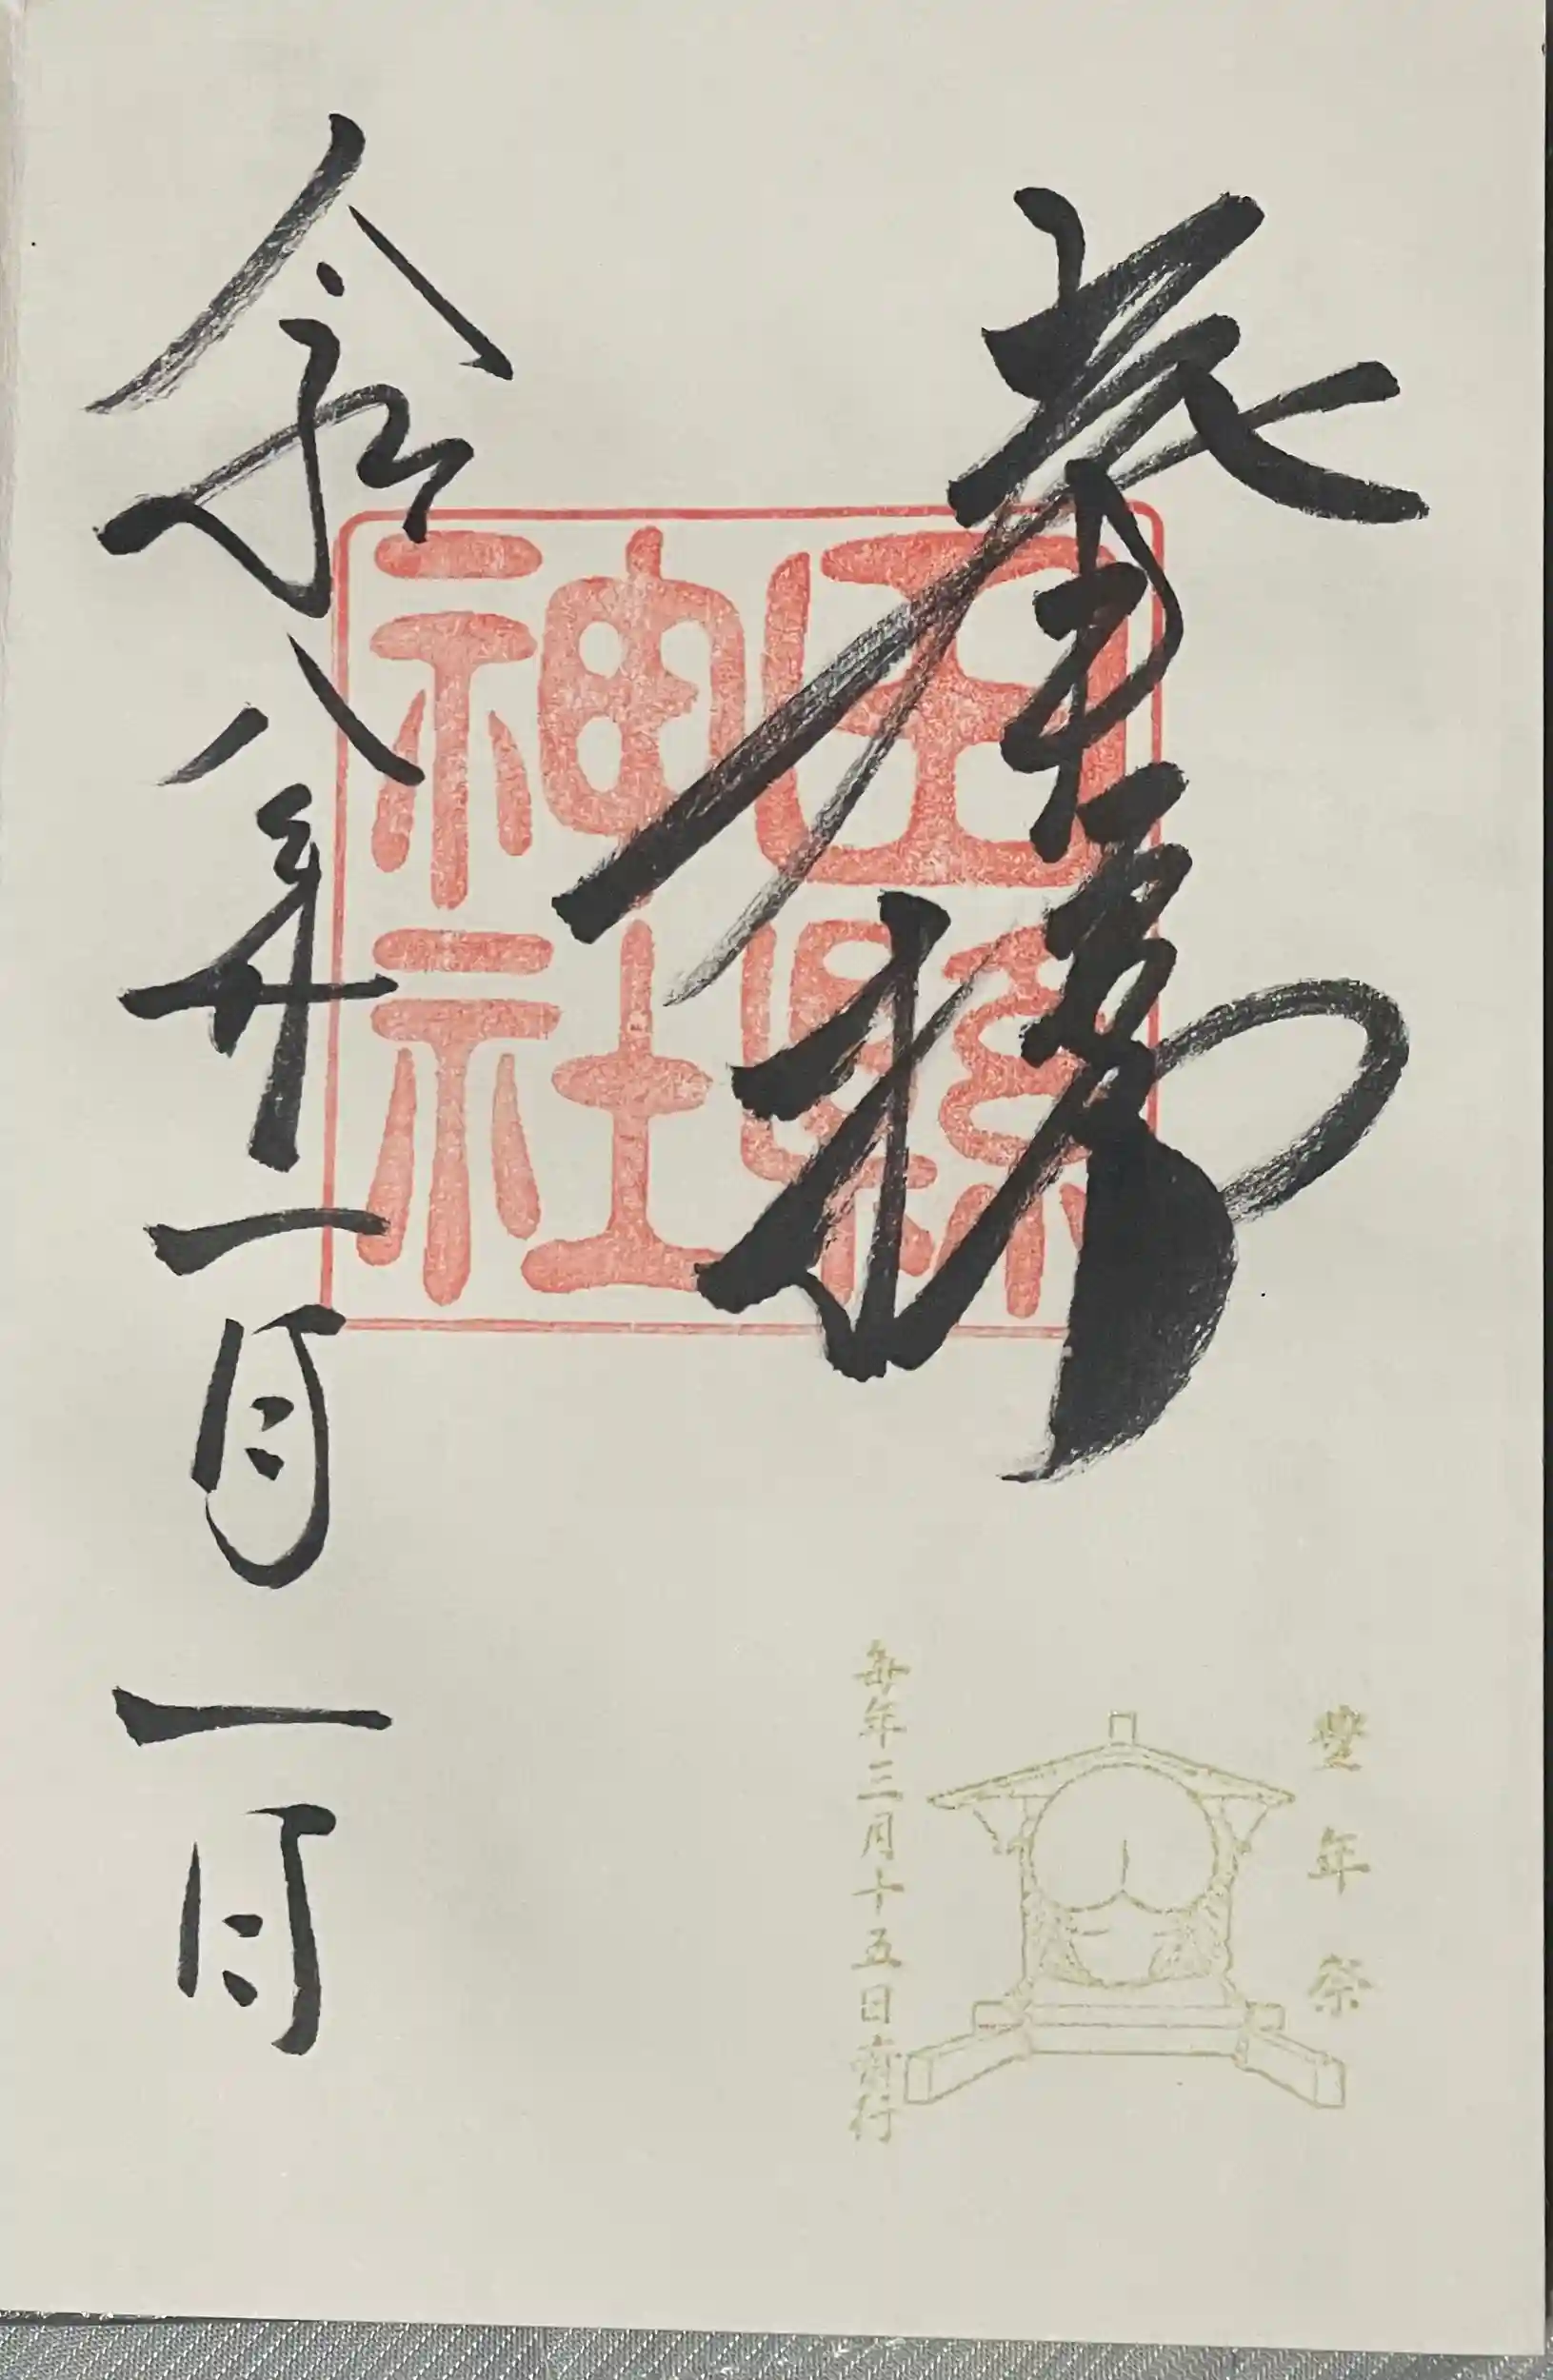 奉拝
田縣神社
豊年祭
毎年三月十五日齋行
令和八年一月一日